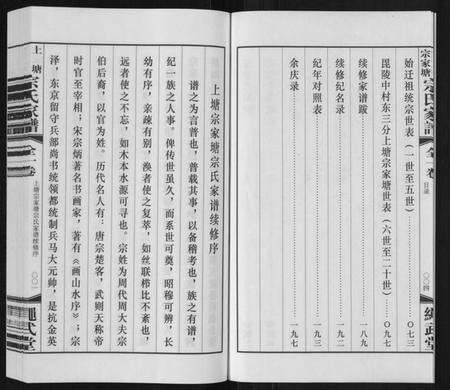 宗家塘宗氏家譜
全一卷
目录
〇〇四
繩武堂
始迁祖统宗世表（一世至五世）……〇七三
毘陵中村东三分上塘宗家塘世表（六世至二十世）……〇九七
续修家谱跋……一八九
续修纪名录……一九二
纪年对照表……一九三
余庆录……一九七
上塘宗家塘宗氏家谱续修序
谱之为言普也，普载其事，以备稽考也，族之有谱，
纪一族之人事。俾传世虽久，而系世可奠，昭穆可辨，长
幼有序，亲疎有别，涣者使之复萃，如丝联栉比不紊也，
远者使之不忘，如木本水源可寻也。宗姓为周代周大夫宗
伯后裔，以官为姓。历代名人有：唐宗楚客，武则天称帝
时官至宰相；宋宗炳著名书画家，著有《画山水序》；宗
泽，东京留守兵部尚书统领都统制兵马大元帅，是抗金英
上塘
宗氏家譜
全一卷
上塘宗家塘宗氏家谱续修序
〇〇一
繩武堂